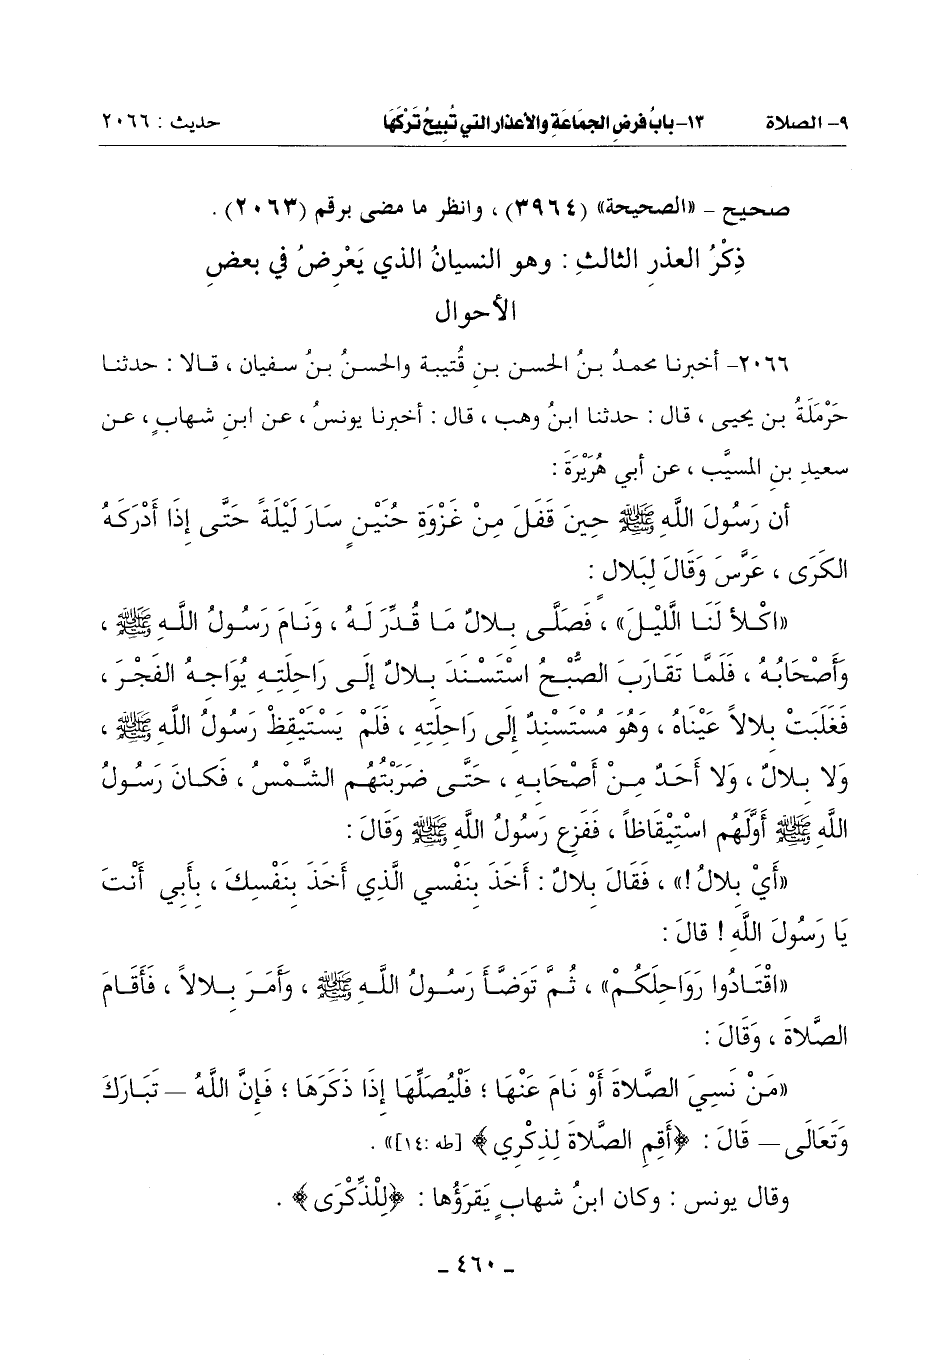 ٩- الصلاة ١٣- بابُ فرضِ الجمَاعَةِ والأعذارِ التي تُبِيحُ تَرْكَهَا حديث : ٢٠٦٦
صحيح – «الصحيحة» (٣٩٦٤) ، وانظر ما مضى برقم (٢٠٦٣) .
ذِكْرُ العذرِ الثالثِ : وهو النسيانُ الذي يَعْرِضُ في بعضِ
الأحوال
٢٠٦٦- أخبرنا محمدُ بنُ الحسن بنِ قُتيبة والحسنُ بنُ سفيان ، قالا : حدثنا
حَرْمَلَةُ بن يحيى ، قال : حدثنا ابنُ وهب ، قال : أخبرنا يونسُ ، عن ابنِ شهابٍ ، عن
سعيدِ بنِ المسيَّب ، عن أبي هُرَيْرَةَ :
أن رَسُولَ اللَّهِ ﷺ حِينَ قَفَلَ مِنْ غَزْوَةِ حُنَيْنٍ سَارَ لَيْلَةً حَتَّى إِذَا أَدْرَكَهُ
الكَرَى ، عَرَّسَ وَقَالَ لِبَلالٍ :
«اكْلأ لَنَا الَّليْلَ» ، فَصَلَّى بِلالٌ مَا قُدِّرَ لَهُ ، وَنَامَ رَسُولُ اللَّهِ ﷺ ،
وَأَصْحَابُهُ ، فَلَمَّا تَقَارَبَ الصُّبْحُ اسْتَسْنَدَ بِلالٌ إِلَى رَاحِلَتِهِ يُوَاجِهُ الفَجْرَ ،
فَغَلَبَتْ بِلالاً عَيْنَاهُ ، وَهُوَ مُسْتَسْنِدٌ إِلَى رَاحِلَتِهِ ، فَلَمْ يَسْتَيْقِظْ رَسُولُ اللَّهِ ﷺ ،
وَلا بِلالٌ ، وَلا أَحَدٌ مِنْ أَصْحَابِهِ ، حَتَّى ضَرَبَتْهُم الشَّمْسُ ، فَكَانَ رَسُولُ
اللَّهِ ﷺ أَوَّلَهُم اسْتِيْقَاظاً ، فَفَزِع رَسُولُ اللَّهِ ﷺ وَقَالَ :
«أَيْ بِلالُ !» ، فَقَالَ بِلالٌ : أَخَذَ بِنَفْسي الَّذِي أَخَذَ بِنَفْسِكَ ، بِأَبِي أَنْتَ
يَا رَسُولَ اللَّهِ ! قالَ :
«اقْتَادُوا رَوَاحِلَكُمْ» ، ثُمَّ تَوَضَّأَ رَسُولُ اللَّهِ ﷺ ، وَأَمَرَ بِلالاً ، فَأَقَامَ
الصَّلاةَ ، وَقَالَ :
«مَنْ نَسِيَ الصَّلاةَ أَوْ نَامَ عَنْهَا ؛ فَلْيُصَلِّهَا إِذَا ذَكَرَهَا ؛ فَإِنَّ اللَّهُ – تَبَارَكَ
وَتَعَالَى – قَالَ : ﴿أَقِمِ الصَّلاةَ لِذِكْرِي﴾ [طه :١٤]» .
وقال يونس : وكان ابنُ شهابٍ يَقرَؤُها : ﴿لِلْذِّكْرَى﴾ .
- ٤٦٠ -